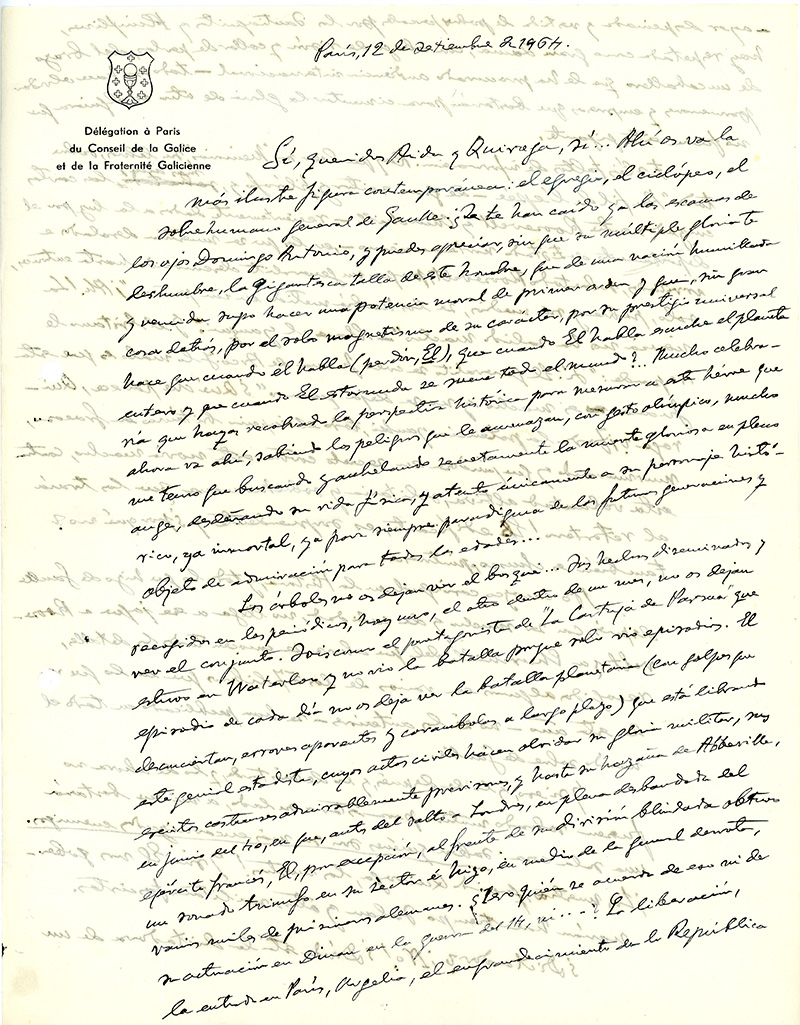 París, 12 de setiembre de 1964.
Délégation à Paris
du Conseil de la Galice
et de la Fraternité Galicienne
Sí, queridos Aida y Quiroga, sí... Ahí os va la
más ilustre figura contemporánea: el egregio, el ciclópeo, el
sobrehumano general de Gaulle. ¿Se te han caído ya las escamas de
los ojos Domingo Antonio, y puedes apreciar, sin que su múltiple gloria te
deslumbre, la gigantesca talla de este hombre, que de una nación humillada
y vencida supo hacer una potencia moral de primer orden y que, sin gran
cosa detrás, por el solo magnetismo de su carácter, por su prestigio universal
hace que cuando él habla (perdón, El), que cuando El habla escucha el planeta
entero y que cuando El estornuda se mueve todo el mundo?.. Mucho celebra-
ría que hayas recobrado la perspectiva histórica para mesurar a este héroe que
ahora va ahí, sabiendo los peligros que le amenazan, con gesto olímpico, mucho
me temo que buscando y anhelando secretamente la muerte gloriosa en pleno
auge, desdeñando su vida física, y atento únicamente a su personaje histó-
rico, ya inmortal, ya para siempre paradigma de las futuras generaciones y
objeto de admiración para todas las edades...
Los árboles no os dejan ver el bosque... Los hechos diseminados y
recogidos en los periódicos, hoy uno, el otro dentro de un mes, no os dejan
ver el conjunto. Sois como el protagonista de "La Cartuja de Parma" que
estuvo en Waterloo y no vio la batalla porque solo vio episodios. El
episodio de cada día no os deja ver la batalla planetaria (con golpes que
desconciertan, errores aparentes y carambolas a largo plazo) que está librando
este genial estadista, cuyos actos civiles hacen olvidar su gloria militar, sus
escritos castrenses admirablemente previsores, y hasta su hazaña de Abbeville,
en junio del 40, en que, antes del salto a Londres, en plena desbandada del
ejército francés, El, por excepción, al frente de su división blindada obtuvo
un sonado triunfo en su sector é hizo, en medio de la general derrota,
varios miles de prisioneros alemanes. ¿Pero quién se acuerda de eso ni de
su actuación en Dinan en la guerra del 14, ni....? La liberación,
la entrada en París, Argelia, el engrandecimiento de la República